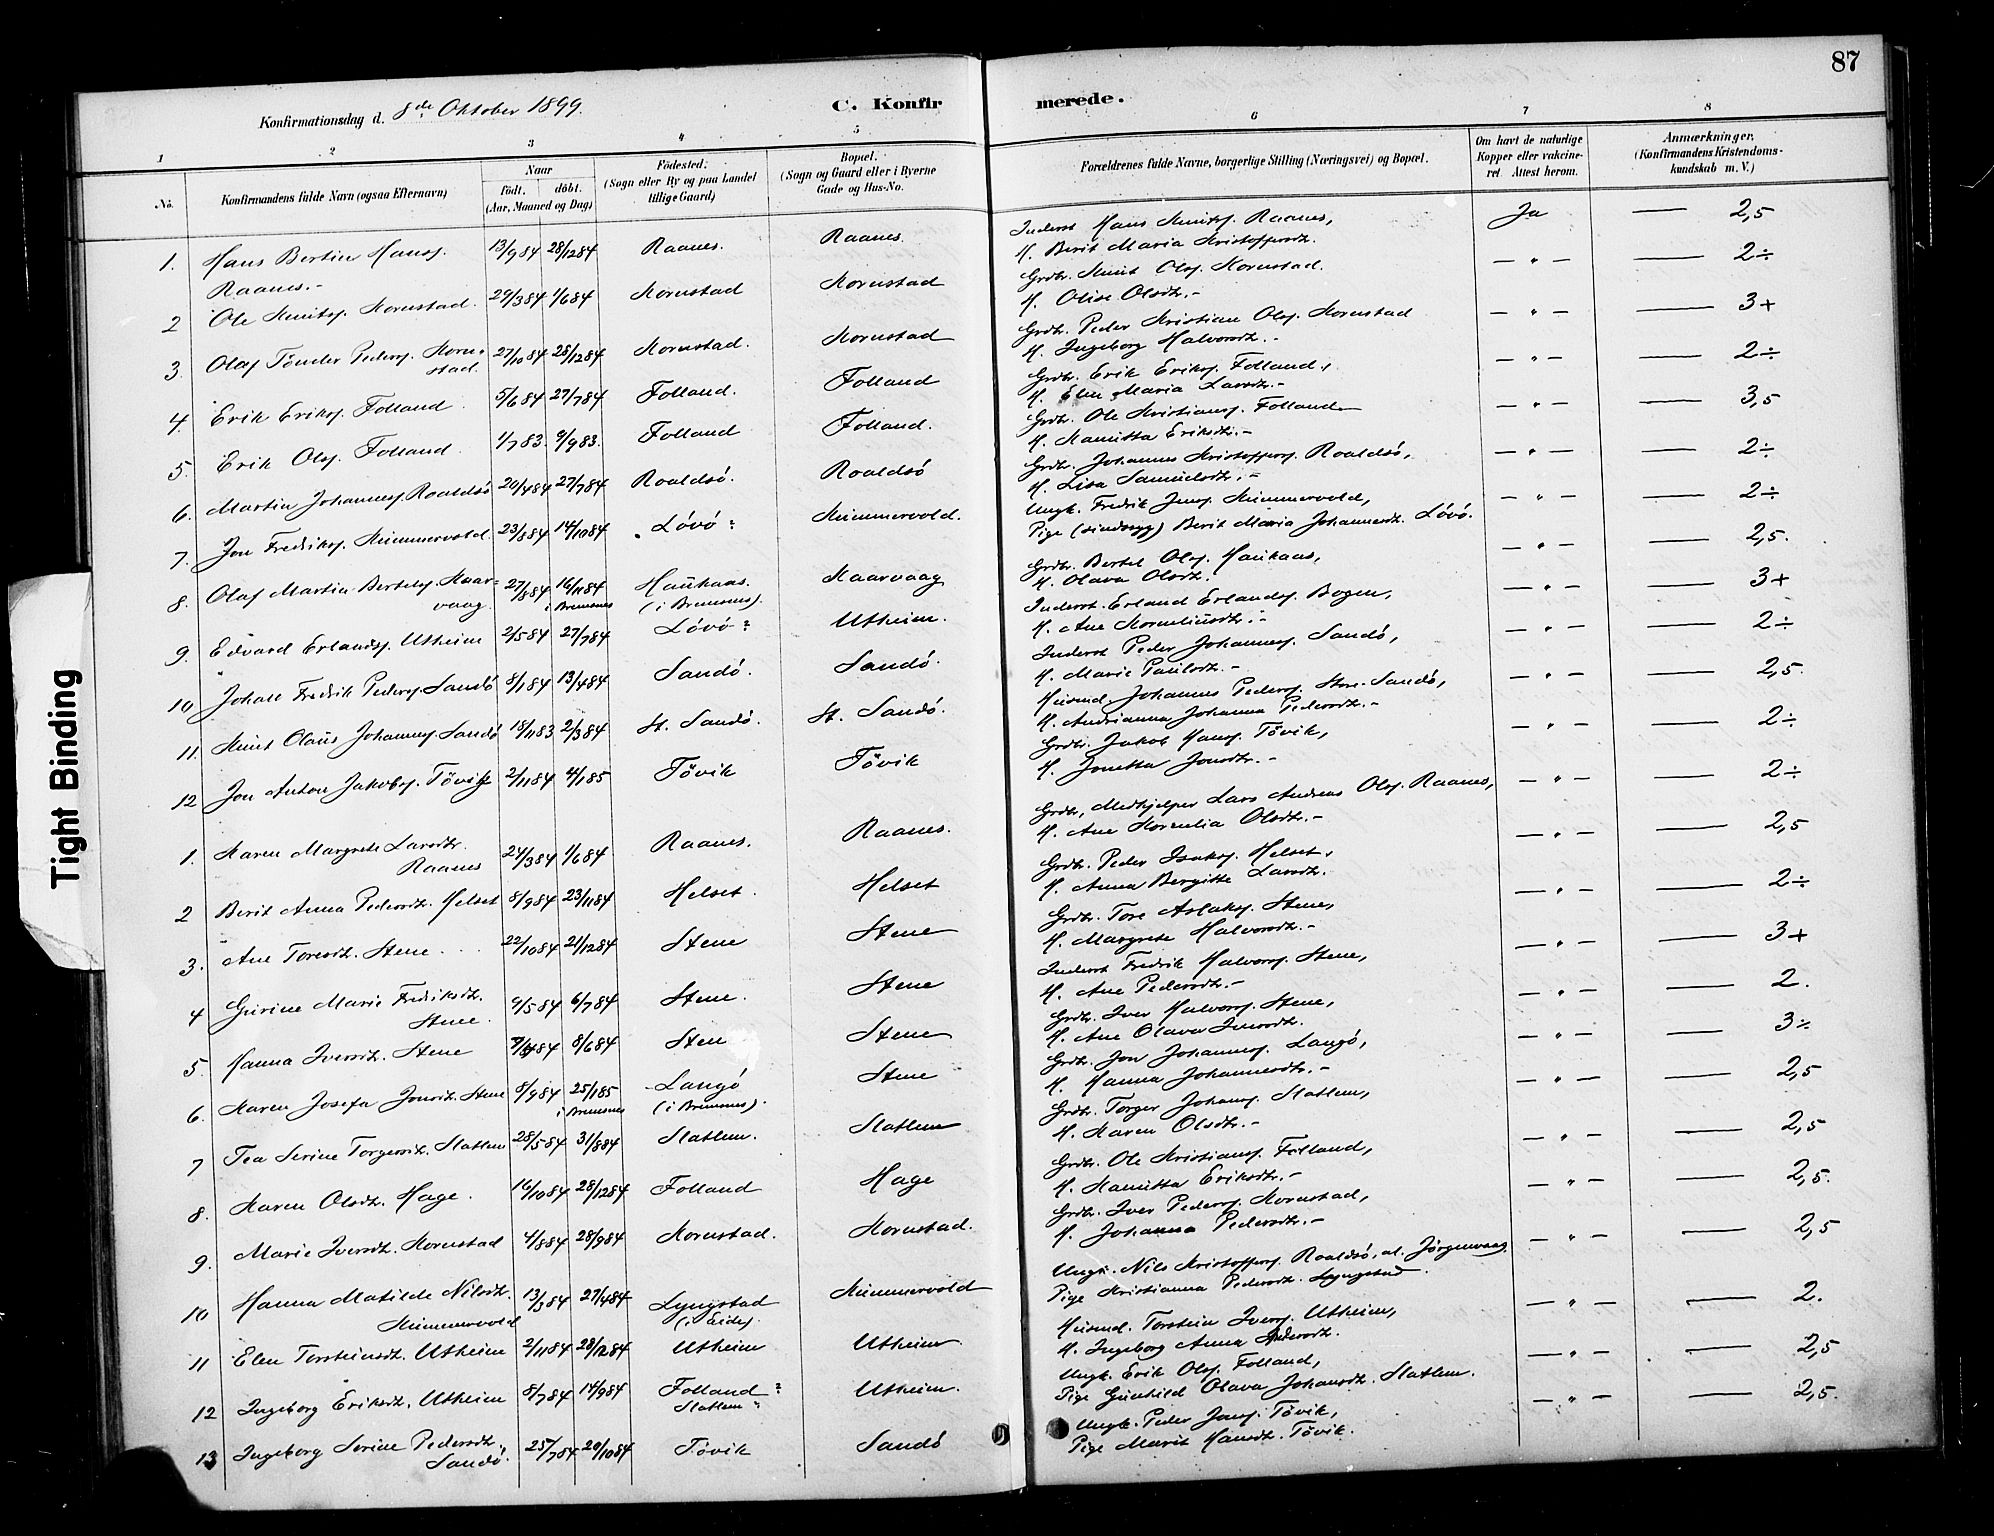 87
Konfirmationsdag d. 8de Oktober 1899.
C. Konfirmerede.
1 2 3 4 5 6 7 8
No.
Konfirmandens fulde Navn (ogsaa Efternavn)
Naar født. døbt. (Aar, Maaned og Dag)
Fødested. (Sogn eller By og paa Landet tillige Gaard)
Bopæl. (Sogn og Gaard eller i Byerne Gade og Hus-No.
Forældrenes fulde Navne, borgerlige Stilling (Næringsvei) og Bopæl.
Om havt de naturlige Kopper eller vakcineret Attest herom.
Anmærkninger. (Konfirmandens Kristendomskundskab m. V.)
1. Hans Bertin Hansş. Raanes.- 13/9 84 28/12 84 Raanes. Raanes. Inderst Hans Knutsş. Raanes, Ja — 2,5
H. Berit Maria Kristoffersdtr.
2 Ole Knutsş. Kornstad. 29/3 84 1/6 84 Kornstad Kornstad Grdbr. Knut Olsş. Kornstad. — " — — 2÷
H. Olise Olsdtr.-
3. Olaf Tønder Pedersş. Kornstad. 27/10 84 28/12 84 Kornstad. Kornstad Grdbr. Peder Kristian Olsş. Kornstad — " — — 3+
H. Ingeborg Halvorsdtr.-
4. Erik Eriksş. Folland. 5/6 84 27/7 84 Folland. Folland Grdbr. Erik Eriksş. Folland, — " — — 2÷
H. Elen Maria Larsdtr.-
5. Erik Olsş. Folland. 1/7 83. 9/9 83. Folland Folland. Grdbr. Ole Kristiansş. Folland — " — — 3,5
H. Hanitta Eriksdtr.-
6. Martin Johannesş. Roaldsö 20/4 84 27/7 84 Roaldsö. Roaldsö Grdbr. Johannes Kristoffersş. Roaldsö, — " — — 2÷
H. Lisa Samuelsdtr.-
7. Jon Fredriksş. Himmervold. 23/8 84 14/10 84 Lövö Himmervold. Ungk. Fredrik Jensş. Himmervold, — " — — 2÷
Pige (sindssyg) Berit Maria Johannesdtr. Lövö.
8. Olaf Martin Bertelsş. Kaarvaag. 27/8 84 16/11 84 i Bremsnes Haukaas. (i Bremsnes). Kaarvaag Grdbr. Bertel Olsş. Haukaas, — " — — 2,5.
H. Olava Olsdtr.
9. Edvard Erlandsş. Utheim 2/5 84 27/7 84 Lövö Utheim. Inderst. Erland Erlandsş. Bogen, — " — — 3+
H. Ane Korneliusdtr.-
10 Johan Fredrik Pedersş. Sandö 8/1 84 13/4 84 Sandö. Sandö. Inderst Peder Johannesş. Sandö, — " — — 2÷
H. Marie Paulsdtr.-
11. Knut Olaus Johannesş. Sandö 18/11 83 2/3 84 St. Sandö. St. Sandö. Husmd. Johannes Pedersş. Store-Sandö, — " — — 2,5.
H. Andrianna Johanna Pedersdtr.-
12 Jon Anton Jakobsş. Tövik 2/11 84 4/1 85 Tövik Tövik Grdbr. Jakob Hansş. Tövik, — " — — 2÷
H. Jonetta Jonsdtr.-
1. Karen Margrete Larsdtr. Raanes 24/3 84 1/6 84 Raanes. Raanes. Grdbr, Medhjelper Lars Andreas Olsş. Raanes, — " — — 2÷
H. Ane Kornelia Olsdtr.-
2 Berit Anna Pedersdtr. Helset 8/9 84 23/11 84 Helset. Helset Grdbr. Peder Isaksş. Helset, — " — — 2,5
H. Anna Bergitte Larsdtr.
3. Ane Toresdtr. Stene. 22/10 84 21/12 84 Stene Stene Grdbr. Tore Aslaksş. Stene, — " — — 2÷
H. Margrete Halvorsdtr.-
4 Gurine Marie Fredriksdtr. Stene. 9/5 84 6/7 84 Stene. Stene Inderst Fredrik Halvorsş. Stene, — " — — 3+
H. Ane Pedersdtr.-
5. Hanna Iversdtr. Stene 84 8/6 84 Stene Stene Grdbr. Iver Halvorsş. Stene, — " — — 2.
H. Ane Olava Iversdtr.
6. Karen Josefa Jonsdtr. Stene 8/9 84 25/1 85 i Bremsnes Langö (i Bremsnes). Stene Grdbr. Jon Johannesş. Langö, — " — — 3÷
H. Hanna Johannesdtr.-
7 Tea Serine Torgersdtr. Slatlem 28/5 84 31/8 84 Slatlem. Slatlem Grdbr. Torger Johansş. Slatlem, — " — — 2,5
H. Karen Olsdtr.-
8. Karen Olsdtr. Hage. 16/10 84 28/12 84 Folland Hage Grdbr. Ole Kristiansş. Folland, — " — — 2,5
H. Hanitta Eriksdtr.-
9. Marie Iversdtr. Kornstad 4/8 84 28/9 84 Kornstad. Kornstad. Grdbr. Iver Pedersş. Kornstad, — " — — 2,5.
H. Johanna Pedersdtr.-
10 Hanna Matilde Nilsdtr. Himmervold 13/3 84 27/4 84 Lyngstad (i Eide). Himmervold Ungk. Nils Kristoffersş. Roaldsö, al. Jörgenvaag. — " — — 2,5
Pige Kristianna Pedersdtr. Lyngstad.
11 Elen Torsteinsdtr. Utheim 2/11 84 28/12 84 Utheim Utheim Husmd. Torstein Iversş. Utheim, — " — — 2.
H. Ingeborg Anna Andersdtr.
12 Ingeborg Eriksdtr. Utheim 8/7 84 14/9 84 Folland Slatlem Utheim. Ungk. Erik Olsş. Folland, — " — — 2,5
Pige Gunhild Olava Johansdtr. Slatlem.
13 Ingeborg Serine Pedersdtr. Sandö. 25/7 84 20/10 84 Tövik Sandö Ungk. Peder Jonsş. Tövik, — " — — 2,5.
Pige Marit Hansdtr. Tövik.
Tight Binding